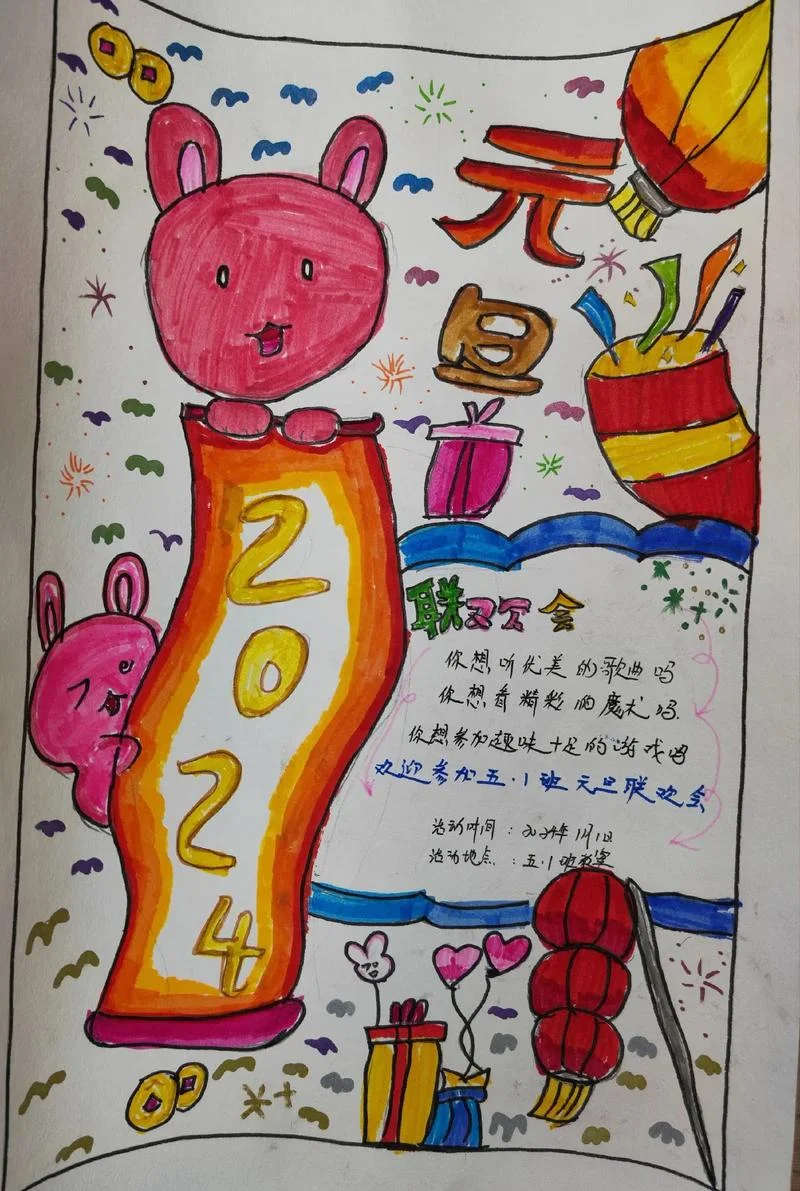 元旦
2024
联欢会
你想听优美的歌曲吗
你想看精彩的魔术吗.
你想参加趣味十足的游戏吗
欢迎参加五.1班元旦联欢会
活动时间：2024年1月1日
活动地点：五.1班教室